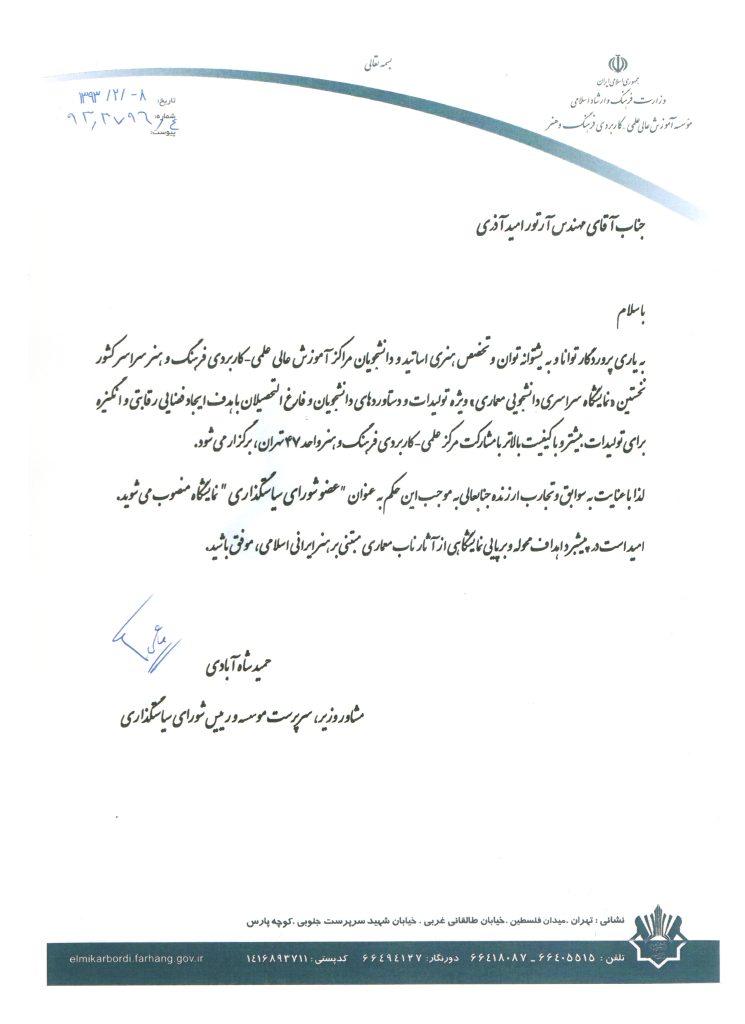 بسمه تعالی
جمهوری اسلامی ایران
وزارت فرهنگ و ارشاد اسلامی
مؤسسه آموزش عالی علمی - کاربردی فرهنگ و هنر
تاریخ: ۱۳۹۳/۲/-۸
شماره:
پیوست:
جناب آقای مهندس آرتور امید آذری
باسلام
به یاری پروردگار توانا و به پشتوانه توان و تخصص هنری اساتید و دانشجویان مراکز آموزش عالی علمی-کاربردی فرهنگ و هنر سراسر کشور
نخستین «نمایشگاه سراسری دانشجویی معماری» ویژه تولیدات و دستاوردهای دانشجویان و فارغ التحصیلان با هدف ایجاد فضایی رقابتی و انگیزه
برای تولیدات بیشتر و با کیفیت بالاتر با مشارکت مرکز علمی-کاربردی فرهنگ و هنر واحد ۴۷ تهران، برگزار می شود.
لذا با عنایت به سوابق و تجارب ارزنده جنابعالی به موجب این حکم به عنوان "عضو شورای سیاستگذاری" نمایشگاه منصوب می شوید.
امید است در پیشبرد اهداف محوله و برپایی نمایشگاهی از آثار ناب معماری مبتنی بر هنر ایرانی اسلامی، موفق باشید.
حمید شاه آبادی
مشاور وزیر، سرپرست موسسه و رییس شورای سیاستگذاری
نشانی : تهران .میدان فلسطین .خیابان طالقانی غربی . خیابان شهید سرپرست جنوبی .کوچه پارس
تلفن : ۶۶۴۰۵۵۱۵ _ ۶۶۴۱۸۰۸۷ دورنگار: ۶۶۴۹۴۱۲۷ کدپستی: ۱۴۱۶۸۹۳۷۱۱ elmikarbordi.farhang.gov.ir